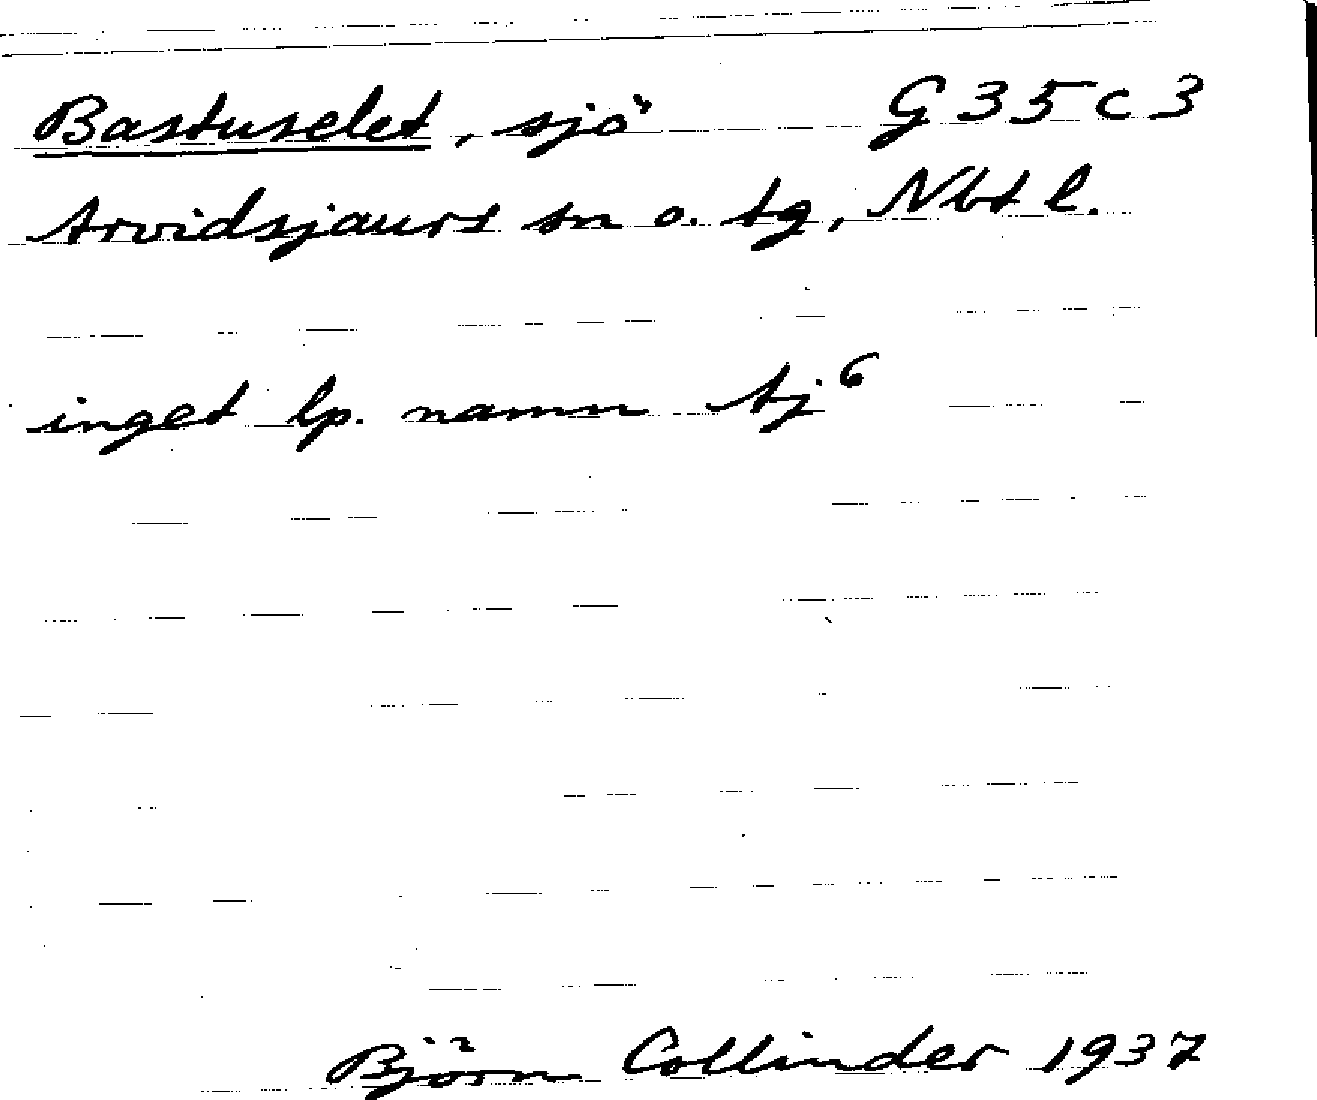 Bastuselet, sjö G 35 c 3
Arvidsjaurs sn o. tg, Nbt l.
inget lp. namn Aj⁶
Björn Collinder 1937